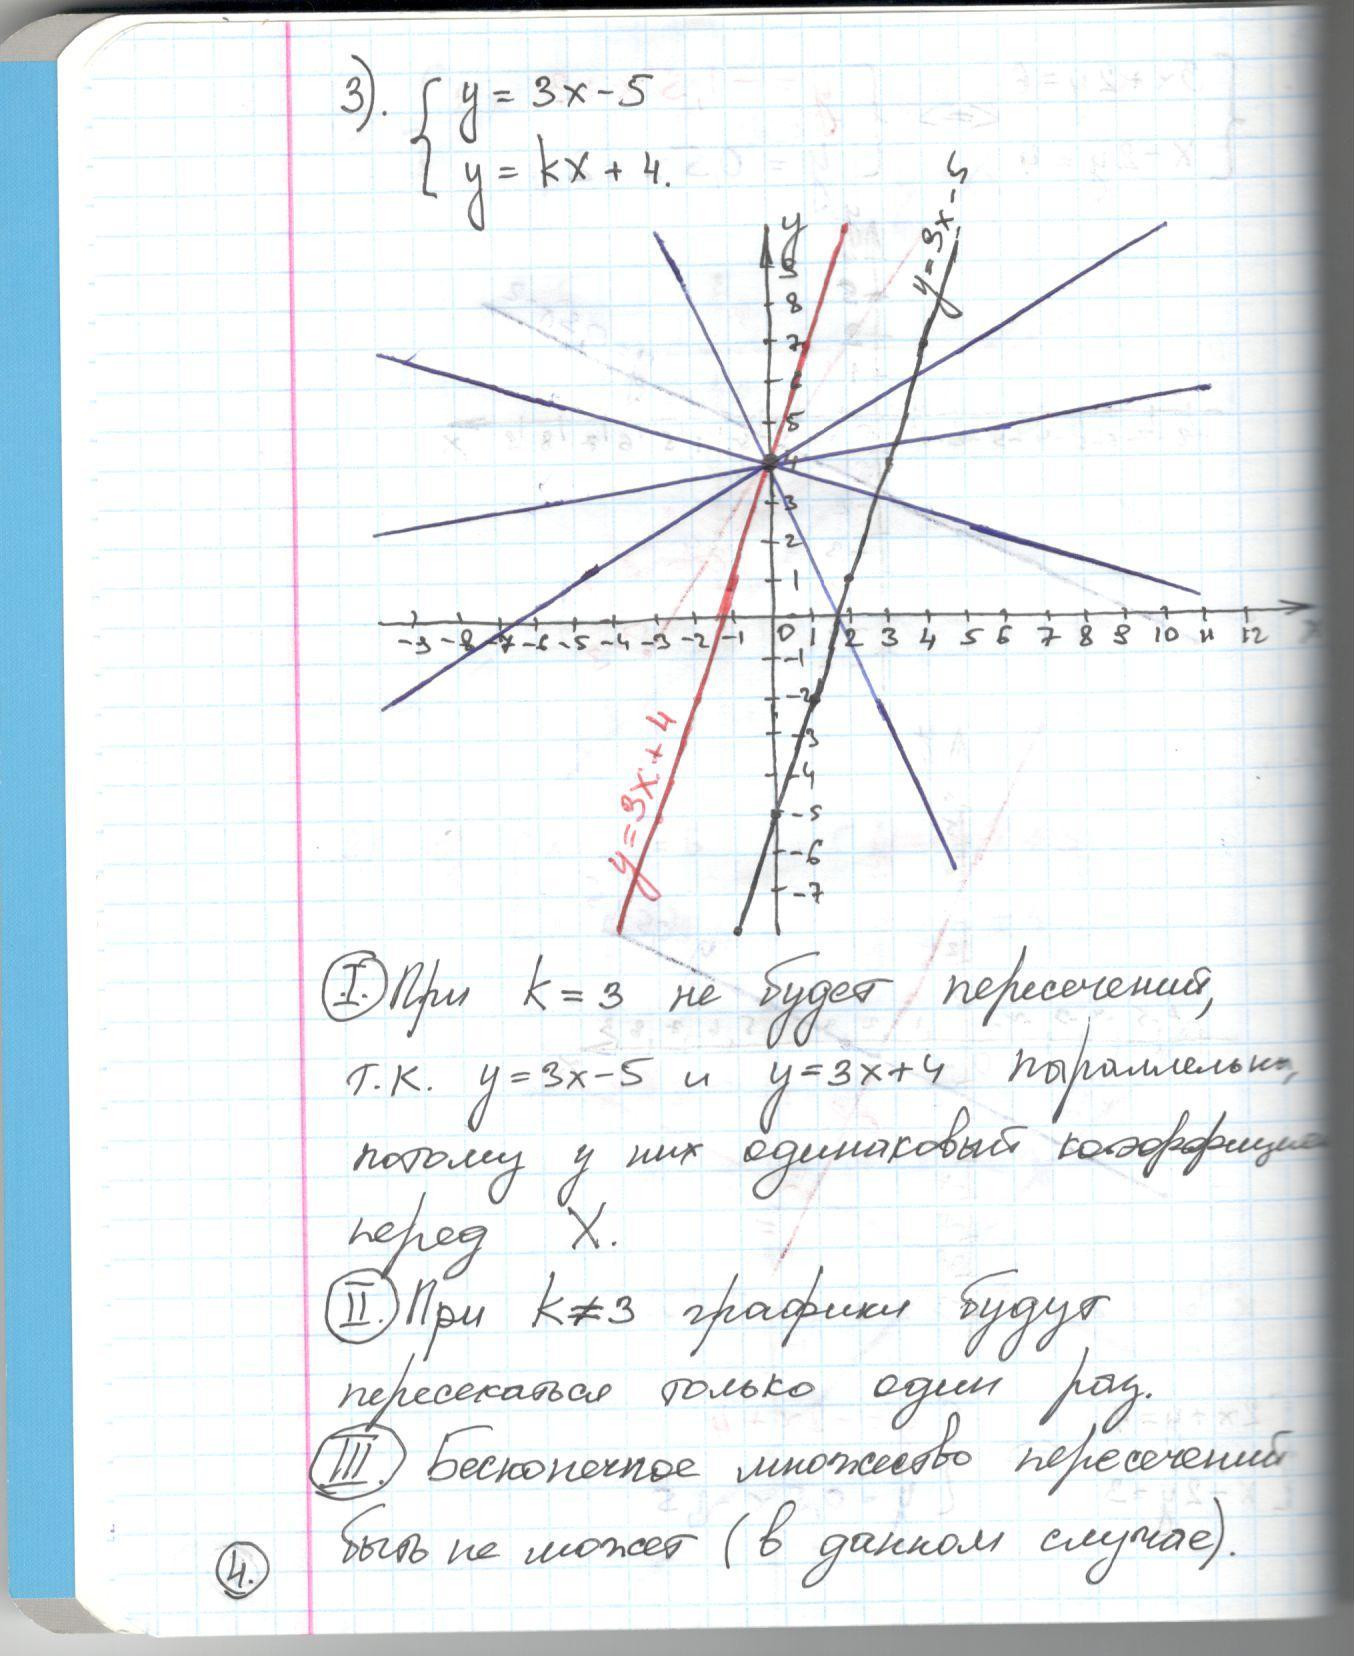 3). { y = 3x - 5
y = kx + 4.
y
y = 3x - 5
9
8
7
6
5
4
3
2
1
-9 -8 -7 -6 -5 -4 -3 -2 -1 0 1 2 3 4 5 6 7 8 9 10 11 12 x
-1
-2
-3
-4
-5
-6
-7
y = 3x + 4
I. При k = 3 не будет пересечений,
т.к. y = 3x - 5 и y = 3x + 4 пыраллельны,
потому у них одинаковый
перед X.
II. При k ≠ 3 графики будут
пересекаться только один раз.
III. Бесконечное множество пересечений
быть не может (в данном случае).
4.